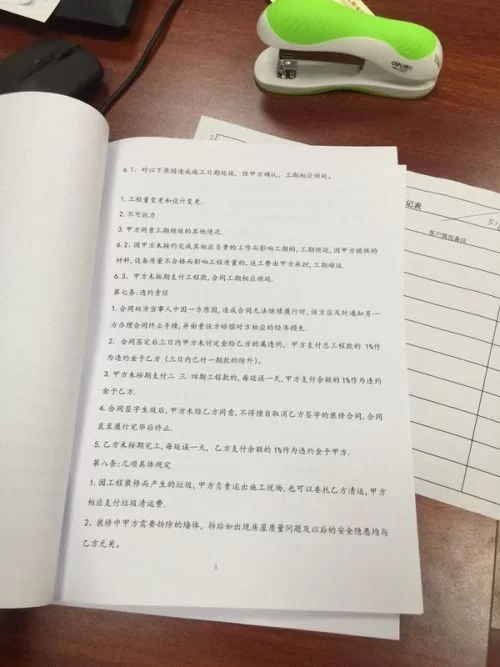 deli
6.1、对以下原因造成竣工日期延误，经甲方确认，工期相应顺延。
1. 工程量变更和设计变更.
2. 不可抗力
3. 甲方同意工期顺延的其他情况.
6.2、因甲方未按约完成其相应负责的工作而影响工期的,工期顺延,因甲方提供的
材料,设备质量不合格而影响工程质量的,返工费由甲方承担,工期顺延.
6.3、甲方未按期支付工程款,合同工期相应顺延.
第七条:违约责任
1. 合同双方当事人中因一方原因,造成合同无法继续履行时,该方应及时通知另一
方办理合同终止手续,并由责任方赔偿对方相应的经济损失.
2. 合同签定后三日内甲方未付定金给乙方的属违约，甲方支付总工程款的 1%作
为违约金于乙方（三日内已付一期款的除外）。
3. 甲方未按期支付二 三 四期工程款的,每延误一天,甲方支付余额的1%作为违约
金于乙方.
4. 合同签字生效后,甲方未经乙方同意,不得擅自取消乙方签字的装修合同,合同
直至履行完毕后终止.
5. 乙方未按期完工,每延误一天, 乙方支付余额的1%作为违约金于甲方.
第八条:几项具体规定
1. 因工程装修而产生的垃圾,甲方负责运出施工现场,也可以委托乙方清运,甲方
相应支付垃圾清运费.
2、装修中甲方需要拆除的墙体，拆后如出现房屋质量问题及以后的安全隐患均与
乙方无关。
记表
客户情况备注